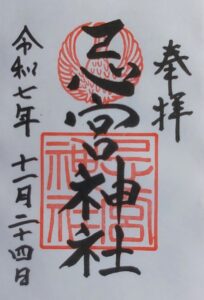 奉拝
忌宮神社
令和七年 十一月二十四日
忌宮
神社